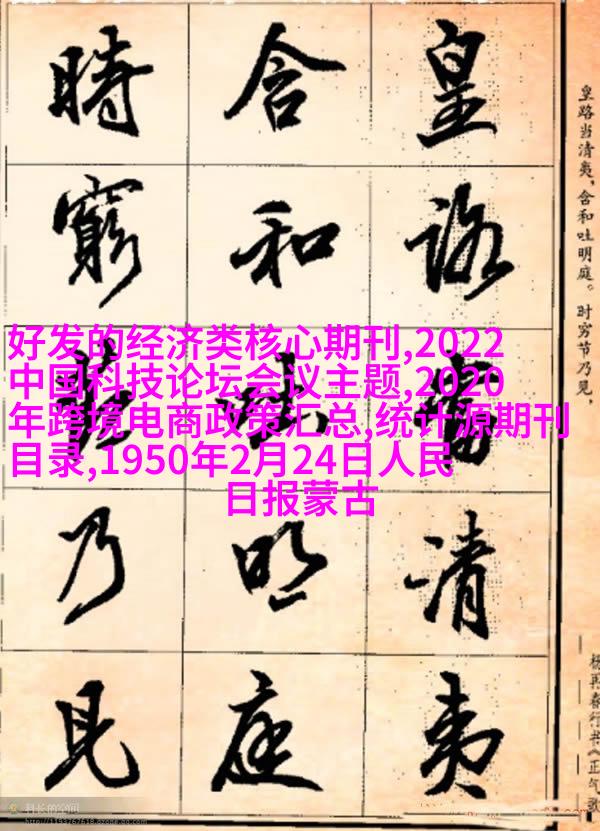 皇路當清夷
含和吐明庭
時窮節乃見
皇路当清夷,含和吐明庭。时穷节乃见,
杨再春行书《正气歌
好发的经济类核心期刊,2022
中国科技论坛会议主题,2020
年跨境电商政策汇总,统计源期刊
目录,1950年2月24日人民
日报蒙古
科长的空间